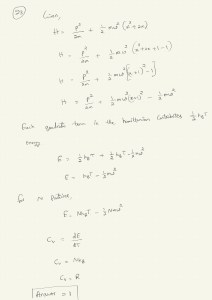 (25) Given,
H = p²/2m + 1/2 mω² (x²+2x)
H = p²/2m + 1/2 mω² (x²+2x+1-1)
H = p²/2m + 1/2 mω² [(x+1)² - 1]
H = p²/2m + 1/2 mω²(x+1)² - 1/2 mω²
Each quadratic term in the Hamiltonian Contributes 1/2 k_BT
energy
E = 1/2 k_BT + 1/2 k_BT - 1/2 mω²
E = k_BT - 1/2 mω²
for N particles,
E = Nk_BT - 1/2 Nmω²
C_v = ∂E/∂T
C_v = Nk_B
C_v = R
Answer = 1